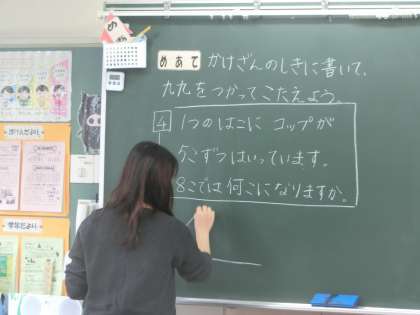 めあて かけざんのしきに書いて、
九九をつかってこたえよう。
4 1つのはこに コップが
5こずつはいっています。
8こでは何こになりますか。